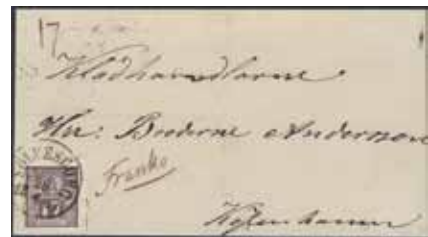 17
Klädhandlarne
Herr: Bröderne Andersson
Franko
Kjøbenhavn